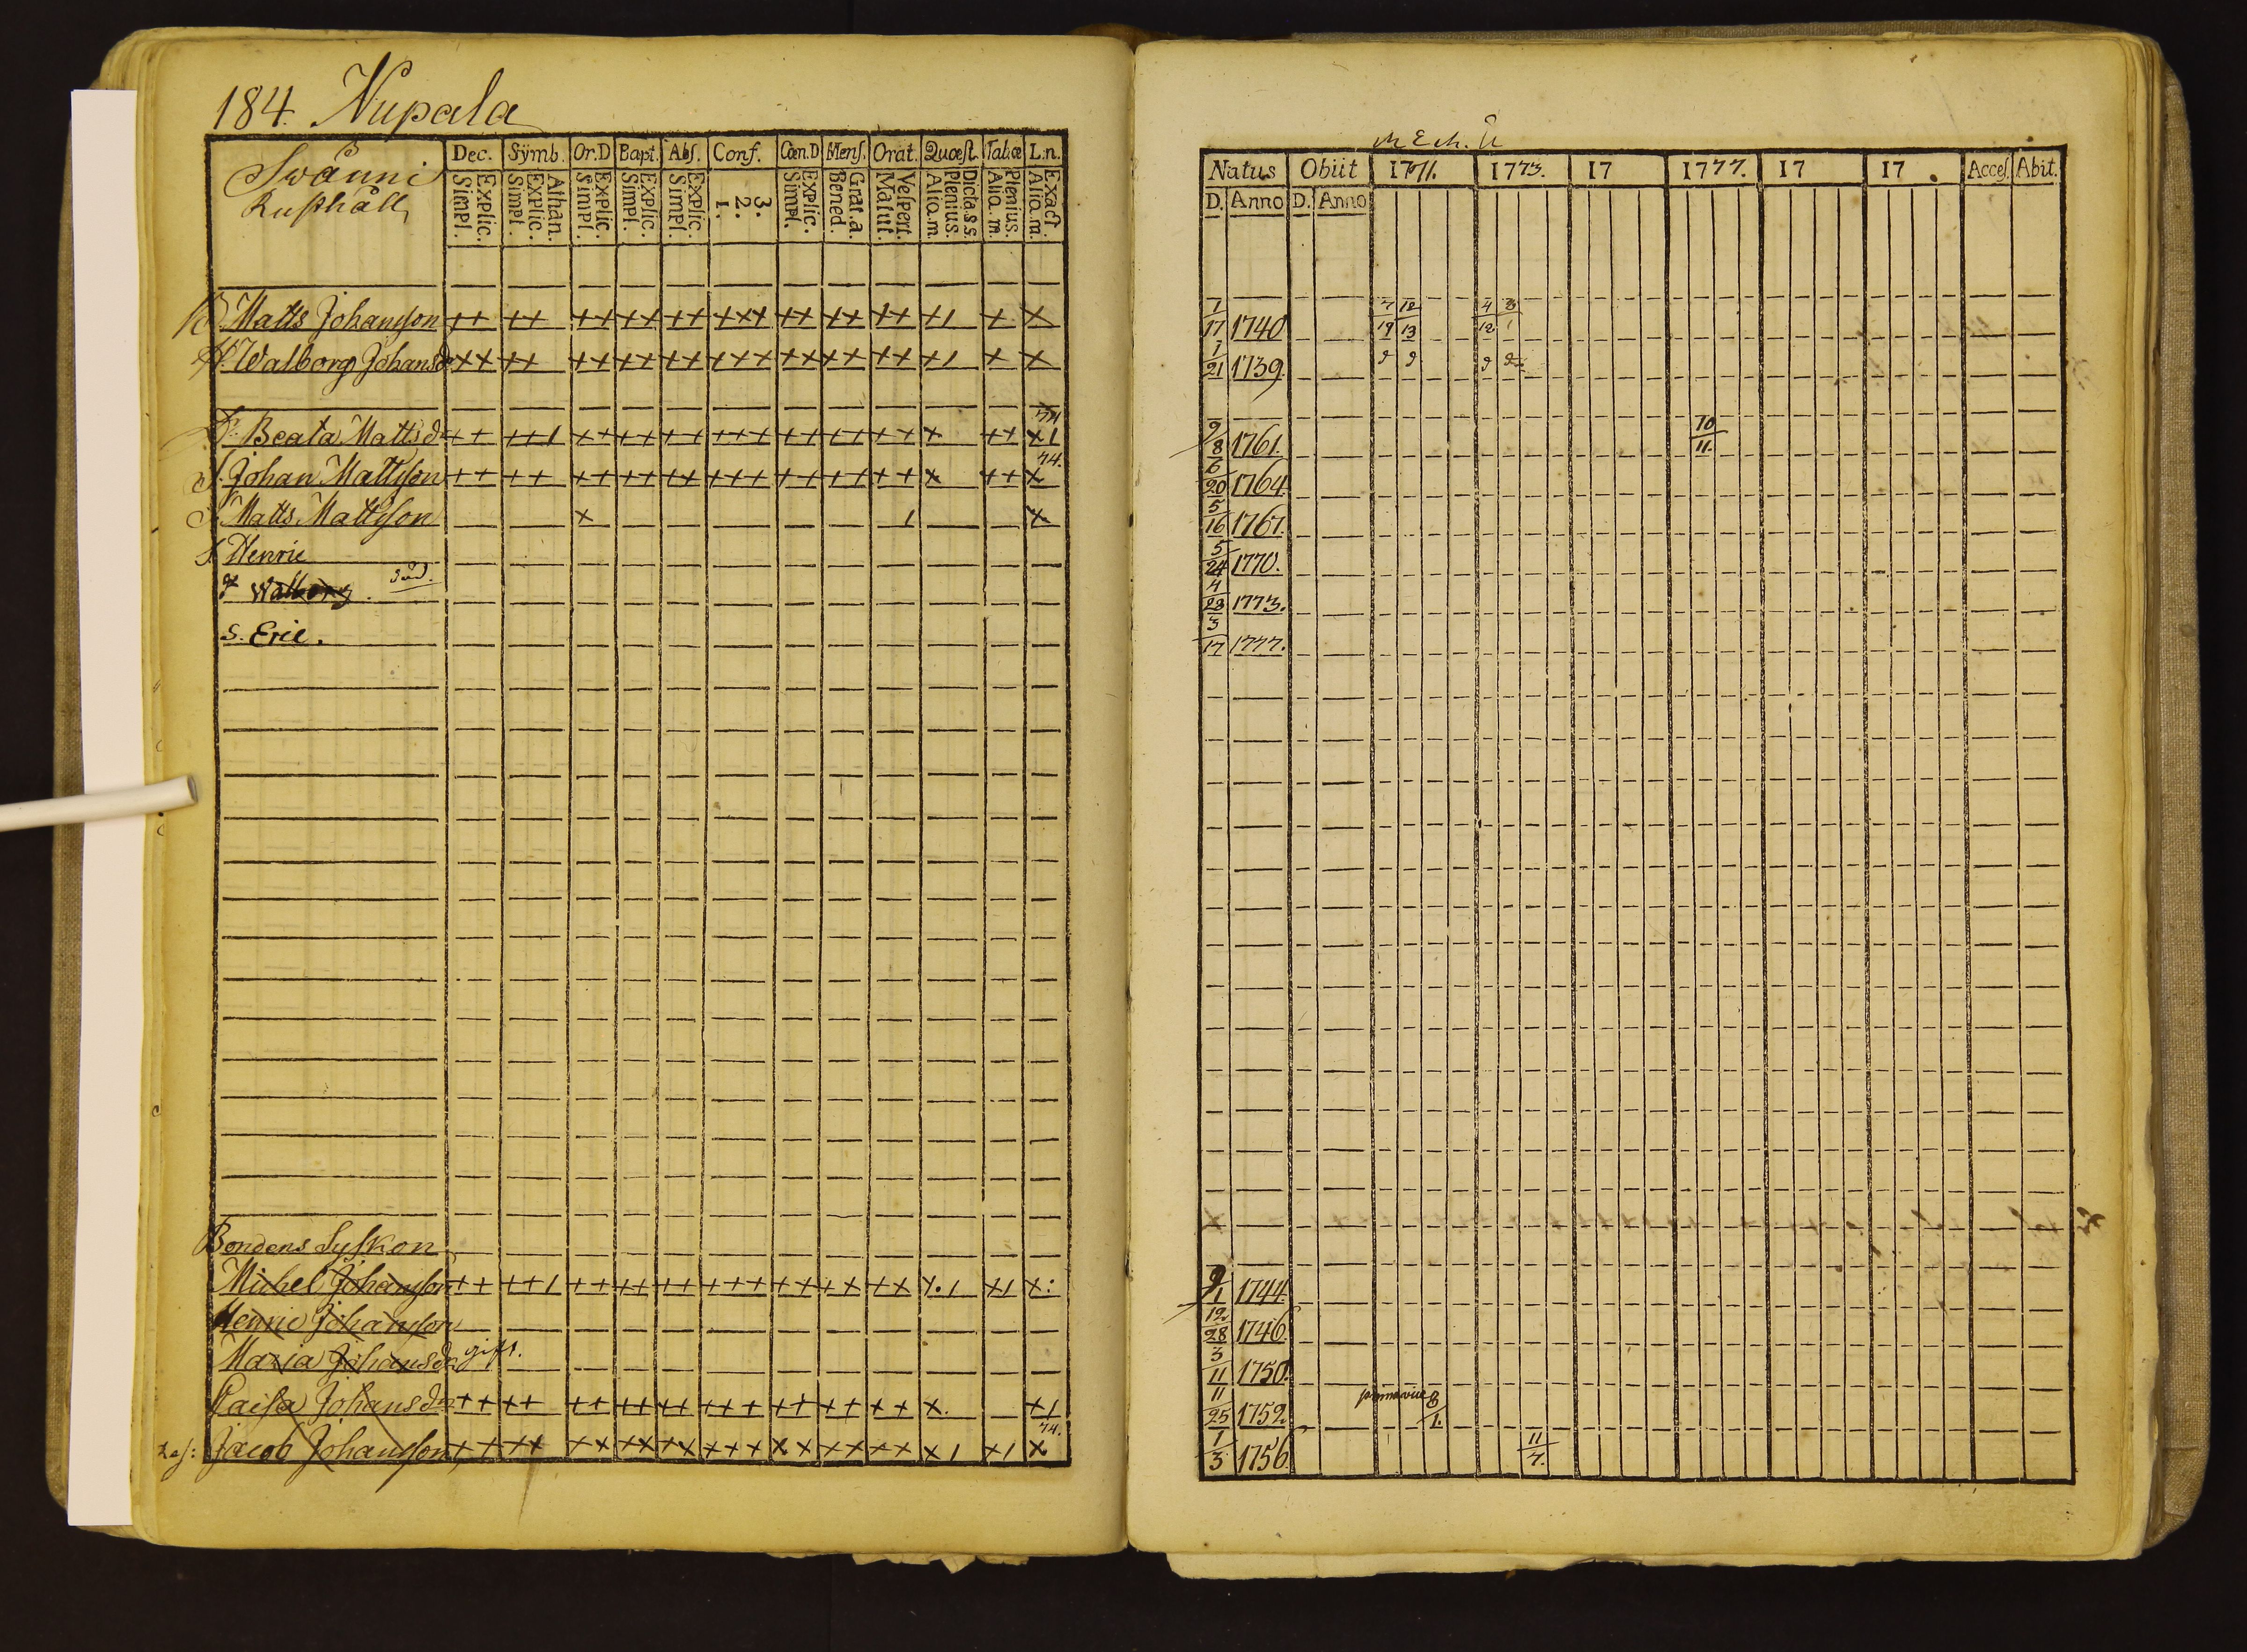 184. Nupala
Swänni
Rusthåll
Dec. Symb. Or.D Bapt. Abs. Conf. Cœn.D Mens. Orat. Quæst. Tabæ L.n.
Explic. Simpl. Athan. Explic. Simpl. Explic. Simpl. Explic. Simpl. Explic. Simpl. 3. 2. 1. Explic. Simpl. Grat. a. Bened. Vespert. Matut. Dicta s.s. Plenius. Aliq. m. Plenius. Aliq. m. Exact. Aliq. m.
B. Matts Johansson ++ ++ ++ ++ ++ +++ ++ ++ ++ +1 + x
H. Walborg Johansdr ++ ++ ++ ++ ++ +++ ++ ++ ++ +1 + x
D. Beata Mattsdr ++ ++1 ++ ++ ++ +++ ++ ++ ++ x ++ x1
74.
S. Johan Mattsson ++ ++ ++ ++ ++ +++ ++ ++ ++ x ++ x
S. Matts Mattsson x 1 x
S. Henric
Walborg. död.
S. Eric.
Bondens Syskon
Michel Johansson ++ ++1 ++ ++ ++ +++ ++ ++ ++ x.1 x1 x:
Henric Johansson
Maria Johansdr gift.
Caisa Johansdr ++ ++ ++ ++ ++ +++ ++ ++ ++ x. x1
74.
Jacob Johansson ++ ++ ++ ++ ++ +++ ++ ++ ++ x1 x1 x
Natus Obiit 1771. 1773. 17 1777. 17 17 Acces. Abit.
D. Anno D. Anno
1/17 1740 7/19 12/13 4/12 3/1
1/21 1739
9/8 1761. 10/11.
6/20 1764
5/16 1767.
5/24 1770.
4/28 1773.
3/17 1777.
9/1 1744
12/28 1746.
3/11 1750.
11/25 1752. 8/1.
1/3 1756. 11/7.